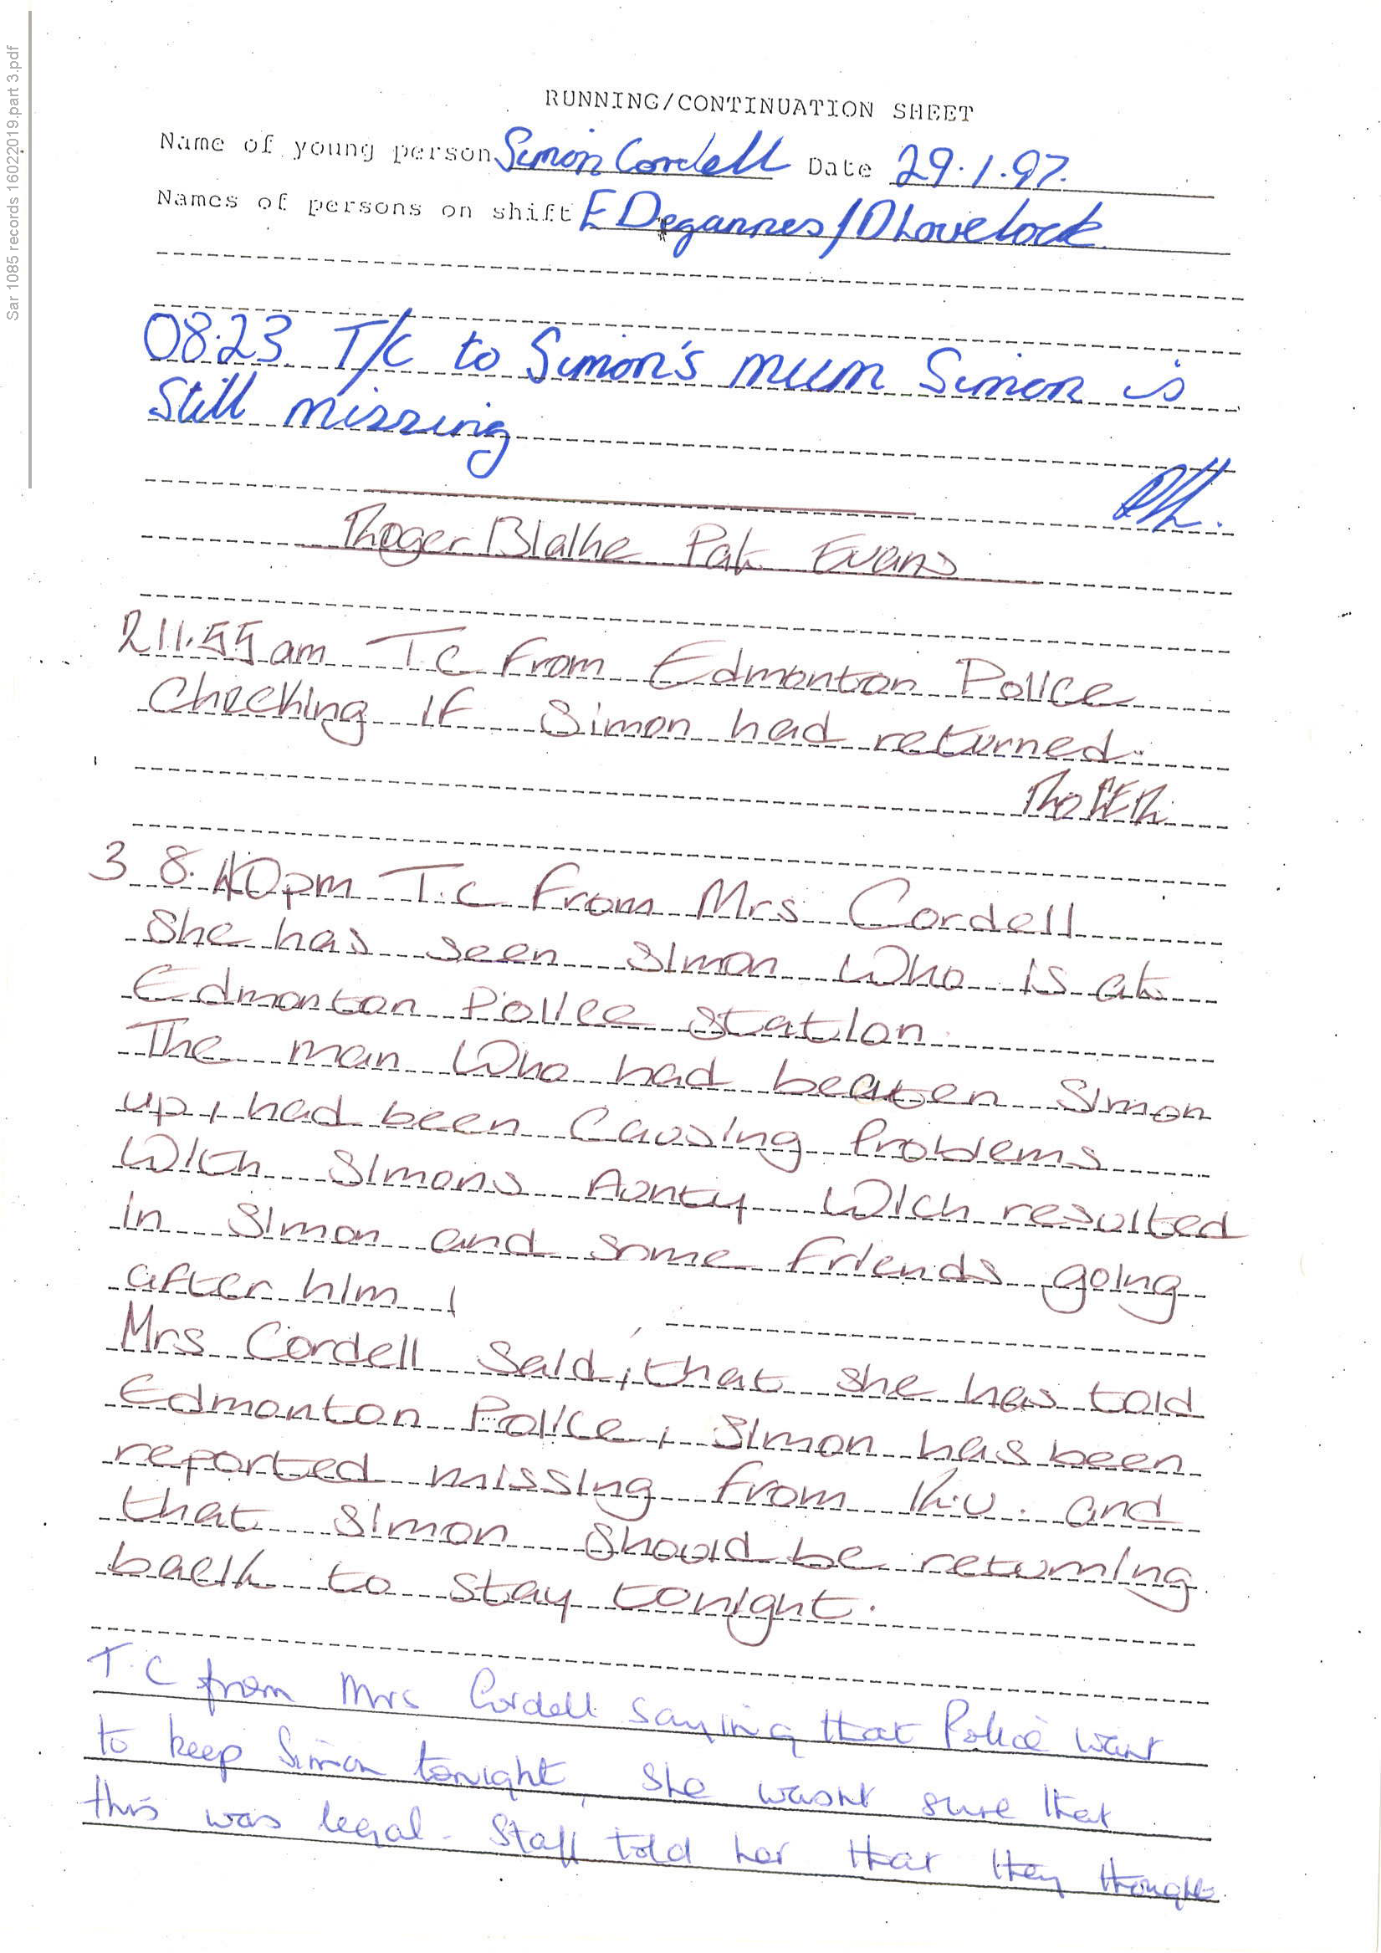 Sar 1085 records 16022019.part 3.pdf
RUNNING/CONTINUATION SHEET
Name of young person Simon Cordell Date 29.1.97.
Names of persons on shift E Degannes / D Lovelock
08.23. T/C to Simon's mum Simon is
Still missing
Roger Blalke Pat Evans
2 11.55 am T.C From Edmonton Police
Checking IF Simon had returned.
3 8.40pm T.C From Mrs Cordell
She has seen Simon Who is at
Edmonton Police Station
The man Who had beaten Simon
up, had been Causing Problems
With Simons Aunty Wich resulted
in Simon and some Friends going
after him
Mrs Cordell Said, that she has told
Edmonton Police, Simon has been
reported missing from R.U. and
that Simon Should be returning
back to stay tonight.
T.C from Mrs Cordell saying that Police want
to keep Simon tonight, she wasnt sure that
this was legal. Staff told her that they thought